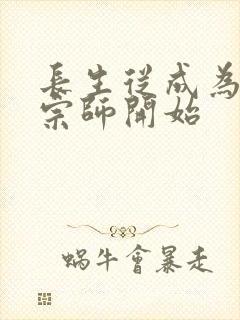 長生從成為
宗師開始
蝸牛會暴走